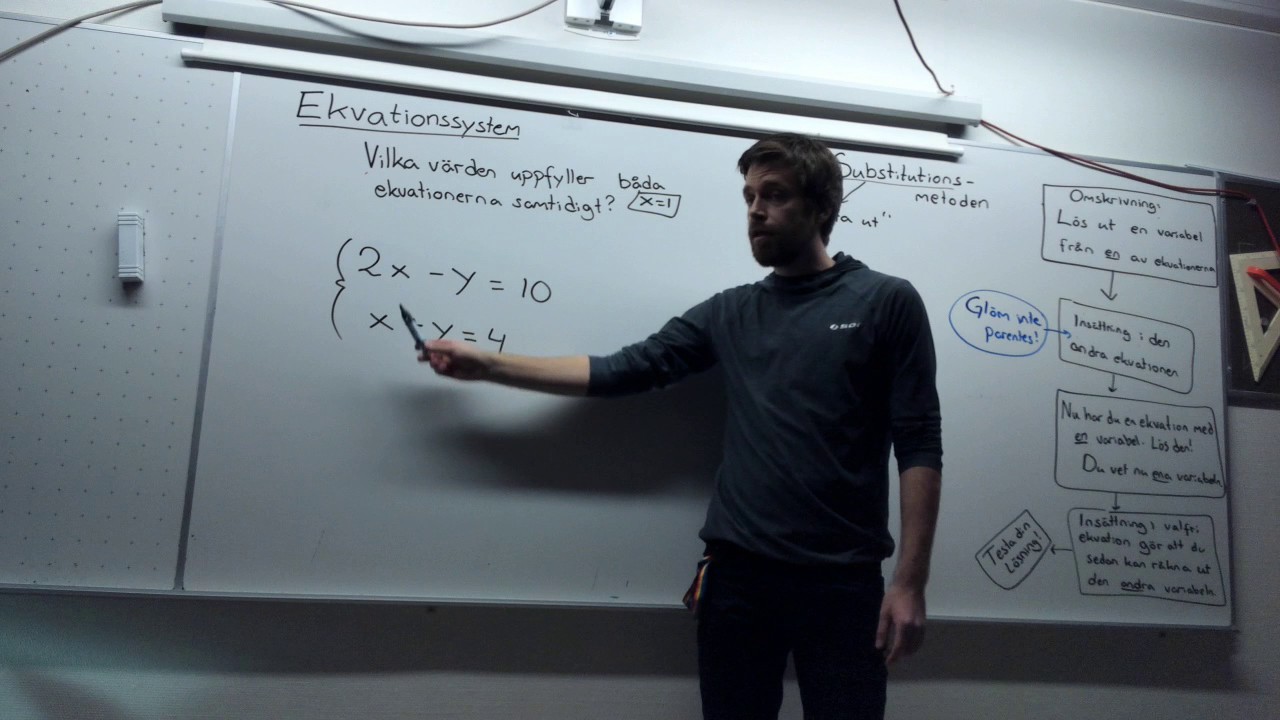 Ekvationssystem
Vilka värden uppfyller båda
ekvationerna samtidigt? x=1
2x - y = 10
x - y = 4
Substitutions-
metoden
ut"
Omskrivning:
Lös ut en variabel
från en av ekvationerna
Glöm inte
parentes!
Insättning i den
andra ekvationen
Nu har du en ekvation med
en variabel. Lös den!
Du vet nu ena variabeln
Insättning i valfri
ekvation gör att du
sedan kan räkna ut
den andra variabeln
Testa din
Lösning!